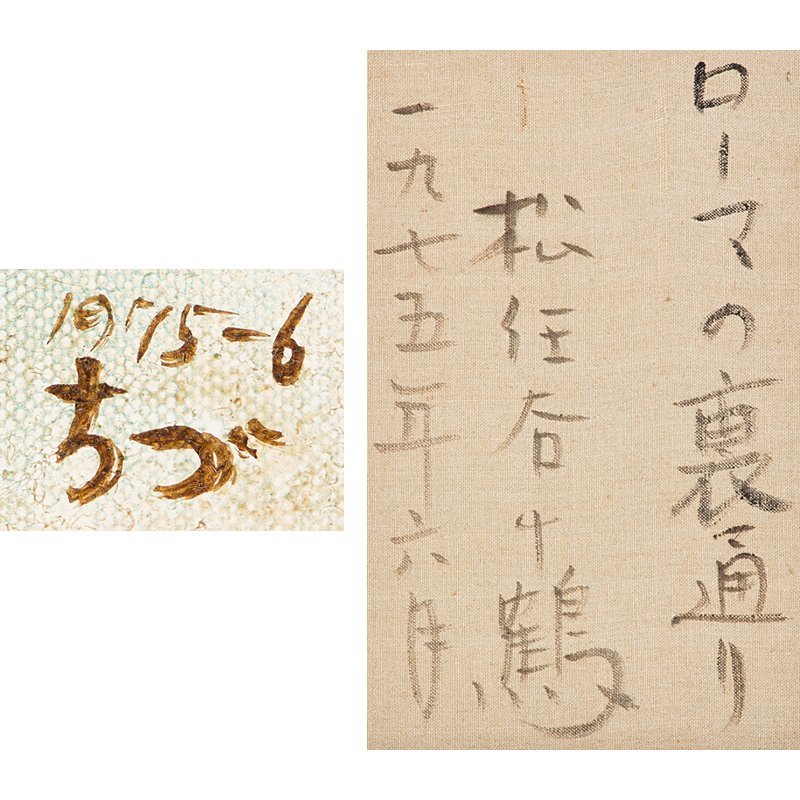 1975-6
ちづ
ローマの裏通り
松任谷千鶴
一九七五年六月